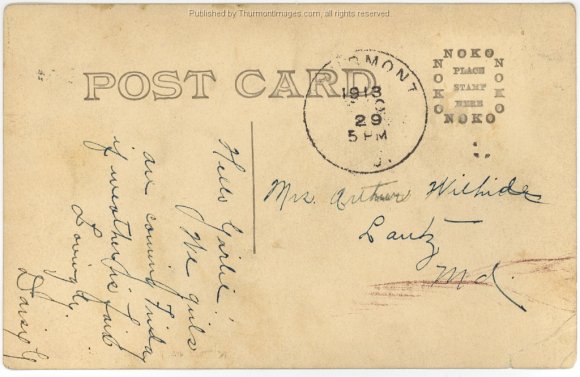 Published by Thurmontimages.com, all rights reserved
POST CARD
NOKO
NOKO
PLACE
STAMP
HERE
NOKO
NOKO
RMONT
1913
29
5 PM
Mrs. Arthur Wilhide
Lantz
Md.
Hello Girlie'
We girls
are coming Friday
if weather is fair
Lovingly,
Daisy G